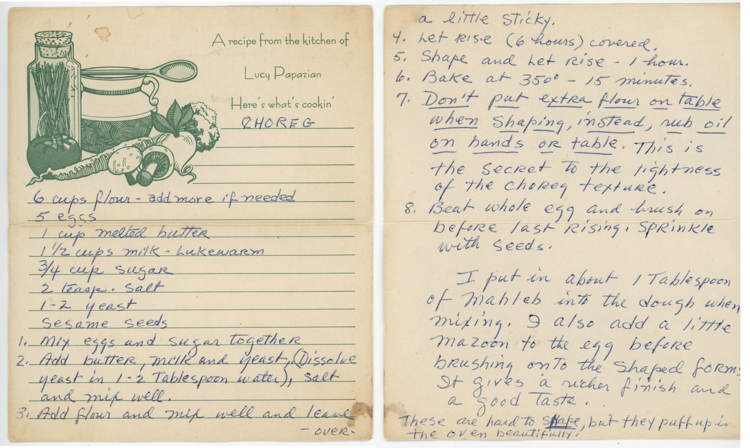 A recipe from the kitchen of
Lucy Papazian
Here's what's cookin'
CHOREG
6 cups flour - add more if needed
5 eggs
1 cup melted butter
1 1/2 cups milk - Lukewarm
3/4 cup sugar
2 teasp. salt
1-2 yeast
Sesame seeds
1. Mix eggs and sugar together
2. Add butter, milk and yeast, (Dissolve
yeast in 1-2 Tablespoon water), salt
and mix well.
3. Add flour and mix well and leave
- over -
a little sticky.
4. Let Rise (6 hours) covered.
5. Shape and Let Rise - 1 hour.
6. Bake at 350° - 15 minutes.
7. Don't put extra flour on table
when shaping, instead, rub oil
on hands or table. This is
the secret to the lightness
of the choreg texture.
8. Beat whole egg and brush on
before last rising. Sprinkle
with seeds.
I put in about 1 Tablespoon
of Mahleb into the dough when
mixing. I also add a little
mazoon to the egg before
brushing onto the shaped forms
It gives a richer finish and
a good taste.
These are hard to shape, but they puff up in
the oven beautifully.